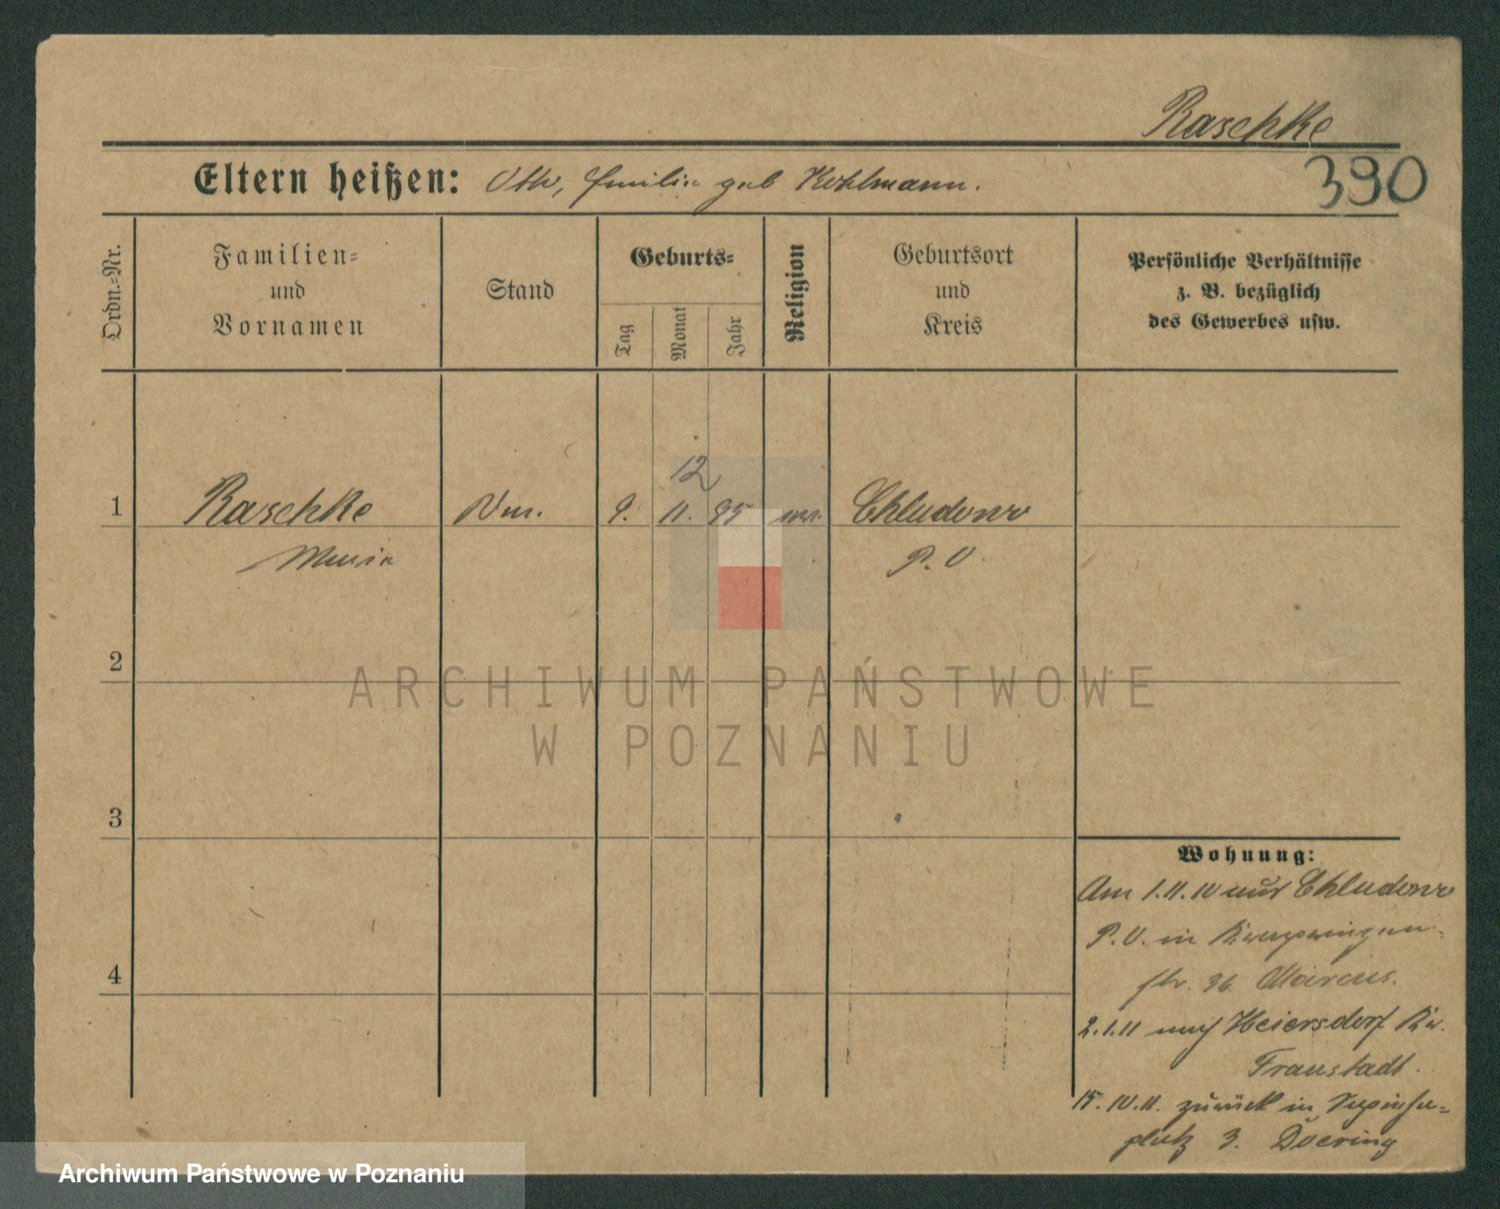 Raschke
390
Eltern heißen: Otto, Emilie geb Kohlmann.
Ordn.=Nr.
Familien=
und
Vornamen
Stand
Geburts=
Tag
Monat
Jahr
Religion
Geburtsort
und
Kreis
Persönliche Verhältnisse
z. B. bezüglich
des Gewerbes usw.
12
1 Raschke 9. 11. 95 Chludowo
Maria P. O.
2
ARCHIWUM PAŃSTWOWE
W POZNANIU
3
Wohnung:
Am 1.11.10 aus Chludowo
P.O. in
str. 36 Marcus.
4
2.1.11 nach Heiersdorf Kr.
Fraustadt.
15.10.11. zurück in Sapieha=
platz 3. Doering
Archiwum Państwowe w Poznaniu